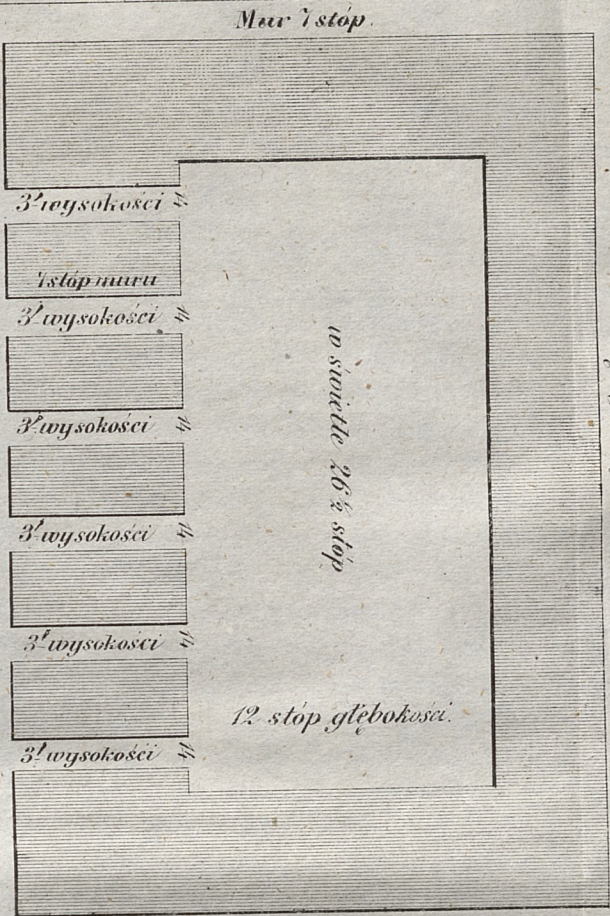 Mur 7 stóp.
3' wysokości 14
7 stóp muru
3' wysokości 14
3' wysokości 14
3' wysokości 14
3' wysokości 14
3' wysokości 14
w świetle 26½ stóp
12 stóp głębokosci.